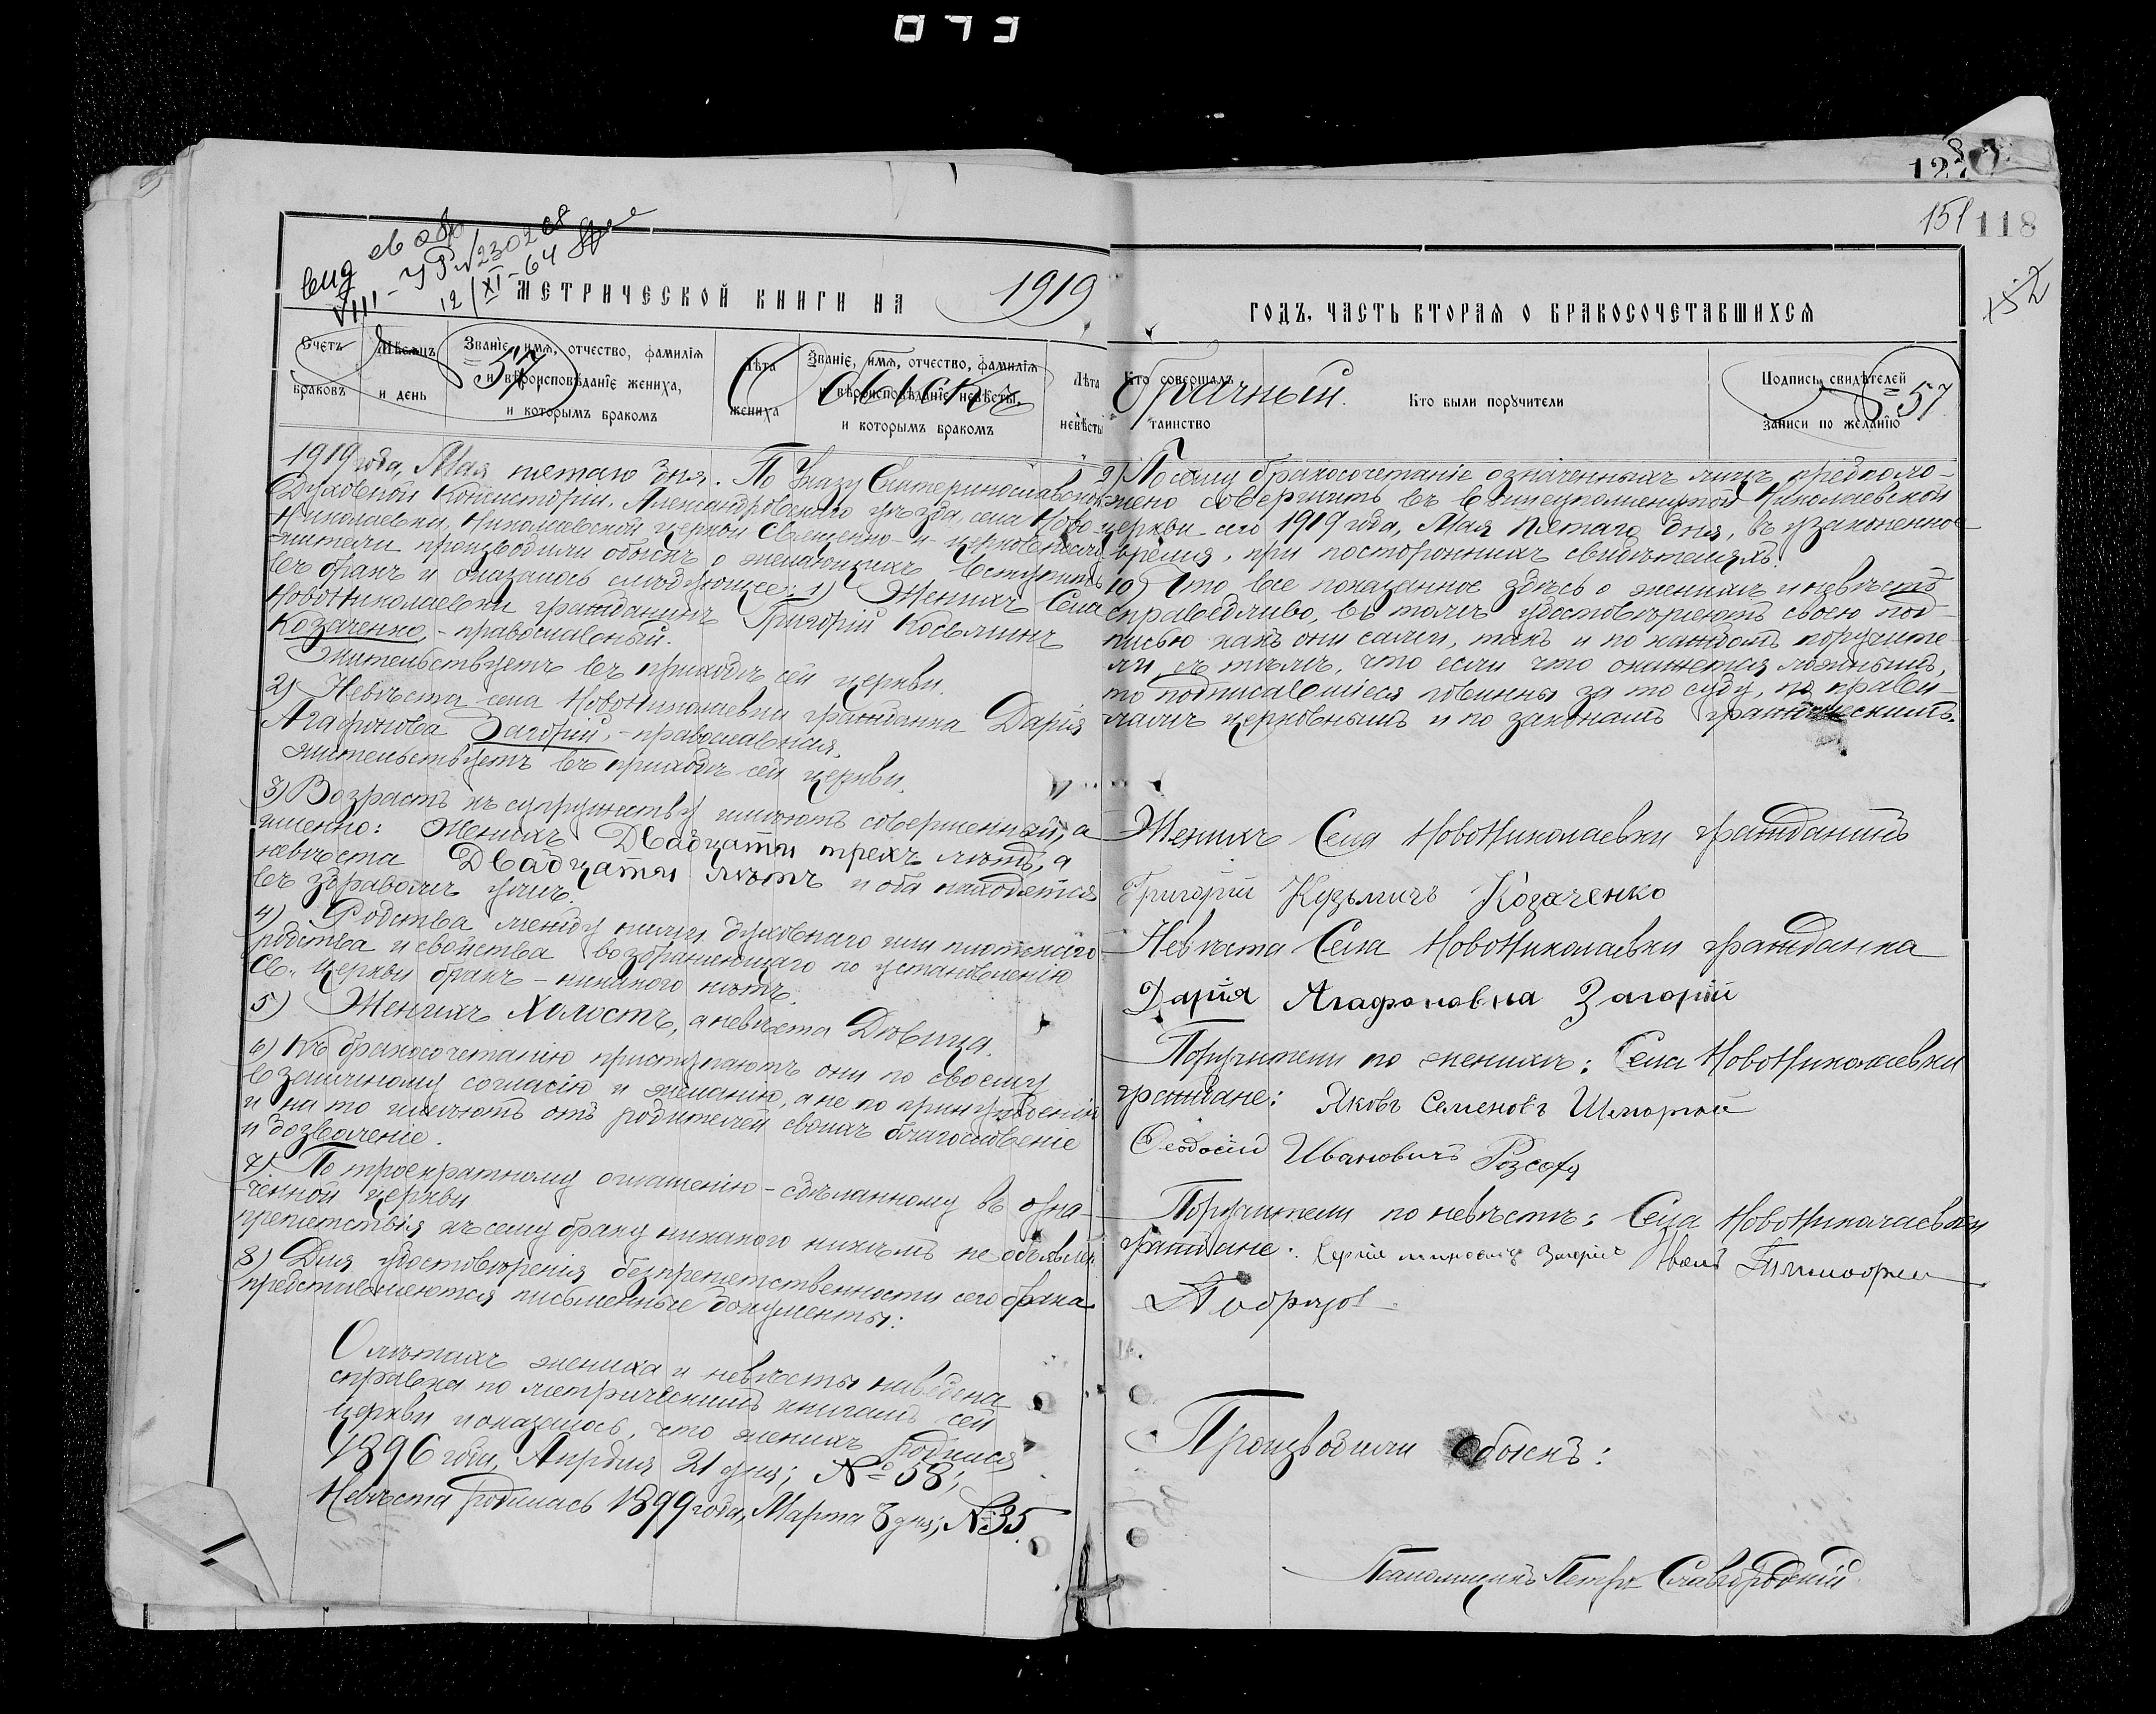 073
128
151 118
152
вид
VIII - УР № 2302
12/XI-64
МЕТРИЧЕСКОЙ КНИГИ НА 1919
Счетъ браковъ
Мѣсяцъ и день
Званіе, имя, отчество, фамилія и вѣроисповѣданіе жениха, и которымъ бракомъ
Лѣта жениха
Званіе, имя, отчество, фамилія и вѣроисповѣданіе невѣсты, и которымъ бракомъ
Лѣта невѣсты
57 Обыскъ
1919 года, Мая пятаго дня. По Указу Екатеринославской
Духовной Консисторіи, Александровскаго уѣзда, села Ново-
Николаевки, Николаевской церкви Священно- и церковнослу-
жители производили обыскъ о желающихъ вступить
въ бракъ и оказалось слѣдующее: 1) Женихъ Села
НовоНиколаевки гражданинъ Григорій Косьминъ
Козаченко, - православный.
Жительствуетъ въ приходѣ сей церкви.
2) Невѣста села НовоНиколаевки гражданка Дарія
Агафонова Загорій, - православная,
жительствуетъ въ приходѣ сей церкви.
3) Возрастъ къ супружеству имѣютъ совершенный, а
именно: Женихъ Двадцати трехъ лѣтъ, а
невѣста Двадцати лѣтъ и оба находятся
въ здравомъ умѣ.
4) Родства между ними духовнаго или плотскаго
родства и свойства возбраняющаго по установленію
Св. Церкви бракъ - никакого нѣтъ.
5) Женихъ Холостъ, а невѣста Дѣвица.
6) Къ бракосочетанію приступаютъ они по своему
взаимному согласію и желанію, а не по принужденію
и на то имѣютъ отъ родителей своихъ благословеніе
и дозволеніе.
7) По троекратному оглашенію - сдѣланному въ озна-
ченной церкви
препятствія къ сему браку никакого никѣмъ не объявлен.
8) Для удостовѣренія безпрепятственности сего брака
представляются письменные документы:
О лѣтахъ жениха и невѣсты наведена
справка по метрическимъ книгамъ сей
церкви и оказалось, что женихъ родился
1896 года, Апрѣля 21 дня; № 58;
Невѣста родилась 1899 года, Марта 8 дня; № 35.
ГОДЪ, ЧАСТЬ ВТОРАЯ О БРАКОСОЧЕТАВШИХСЯ
Кто совершалъ таинство
Кто были поручители
Подпись свидѣтелей записи по желанію
брачный. 57
9) По сему бракосочетаніе означенныхъ лицъ предполо-
жено совершить въ вышеупомянутой Николаевской
церкви сего 1919 года, Мая Пятаго дня, въ узаконенное
время, при постороннихъ свидѣтеляхъ.
10) Что все показанное здѣсь о женихѣ и невѣстѣ
справедливо, въ томъ удостовѣряютъ своею под-
писью какъ они сами, такъ и по каждомъ поручите-
ли, съ тѣмъ, что если что окажется ложнымъ,
то подписавшіеся повинны за то суду, по прави-
ламъ церковнымъ и по законамъ гражданскимъ.
Женихъ Села НовоНиколаевки гражданинъ
Григорій Кузьмичъ Козаченко
Невѣста Села НовоНиколаевки гражданка
Дарія Агафоновна Загорій
Поручители по женихѣ: Села НовоНиколаевки
граждане: Яковъ Семеновъ
Феодосій Ивановичъ
Поручители по невѣстѣ: Села НовоНиколаевки
граждане: Загорій Иванъ Тимофеи
Производили обыскъ:
Псаломщикъ Петръ Славгородскій